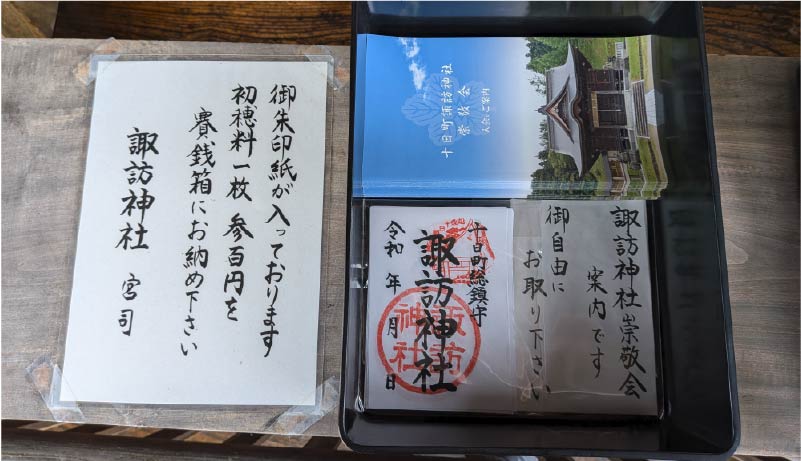 御朱印紙が入っております
初穂料一枚 参百円を
賽銭箱にお納め下さい
諏訪神社 宮司
十日町諏訪神社
崇敬会
入会のご案内
諏訪神社崇敬会
案内です
御自由に
お取り下さい
十日町総鎮守
諏訪神社
令和 年 月 日
諏訪
神社